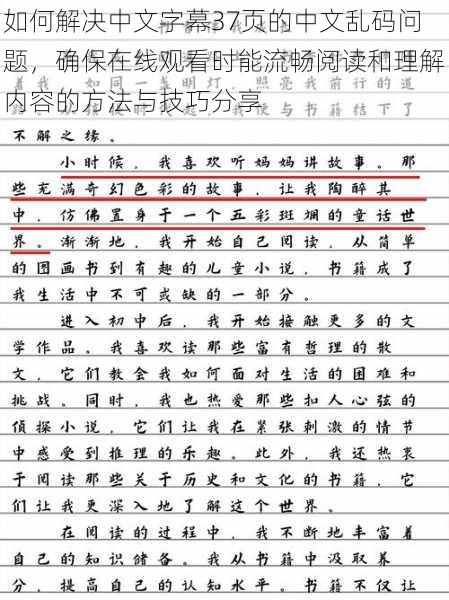 如何解决中文字幕37页的中文乱码问
题，确保在线观看时能流畅阅读和理解
内容的方法与技巧分享
不解之缘。
小时候，我喜欢听妈妈讲故事。那
些充满奇幻色彩的故事，让我陶醉其
中，仿佛置身于一个五彩斑斓的童话世
界。渐渐地，我开始自己阅读，从简单
的图画书到有趣的儿童小说，书籍成了
我生活中不可或缺的一部分。
进入初中后，我开始接触更多的文
学作品。我喜欢读那些富有哲理的散
文，它们教会我如何面对生活的困难和
挑战。同时，我也热爱那些扣人心弦的
侦探小说，它们让我在紧张刺激的情节
中感受到推理的乐趣。此外，我还热衷
于阅读那些关于历史和文化的书籍，它
们让我更深入地了解这个世界。
在阅读的过程中，我不断地丰富着
自己的知识储备。我从书籍中汲取养
分，提高自己的认知水平。书籍不仅让